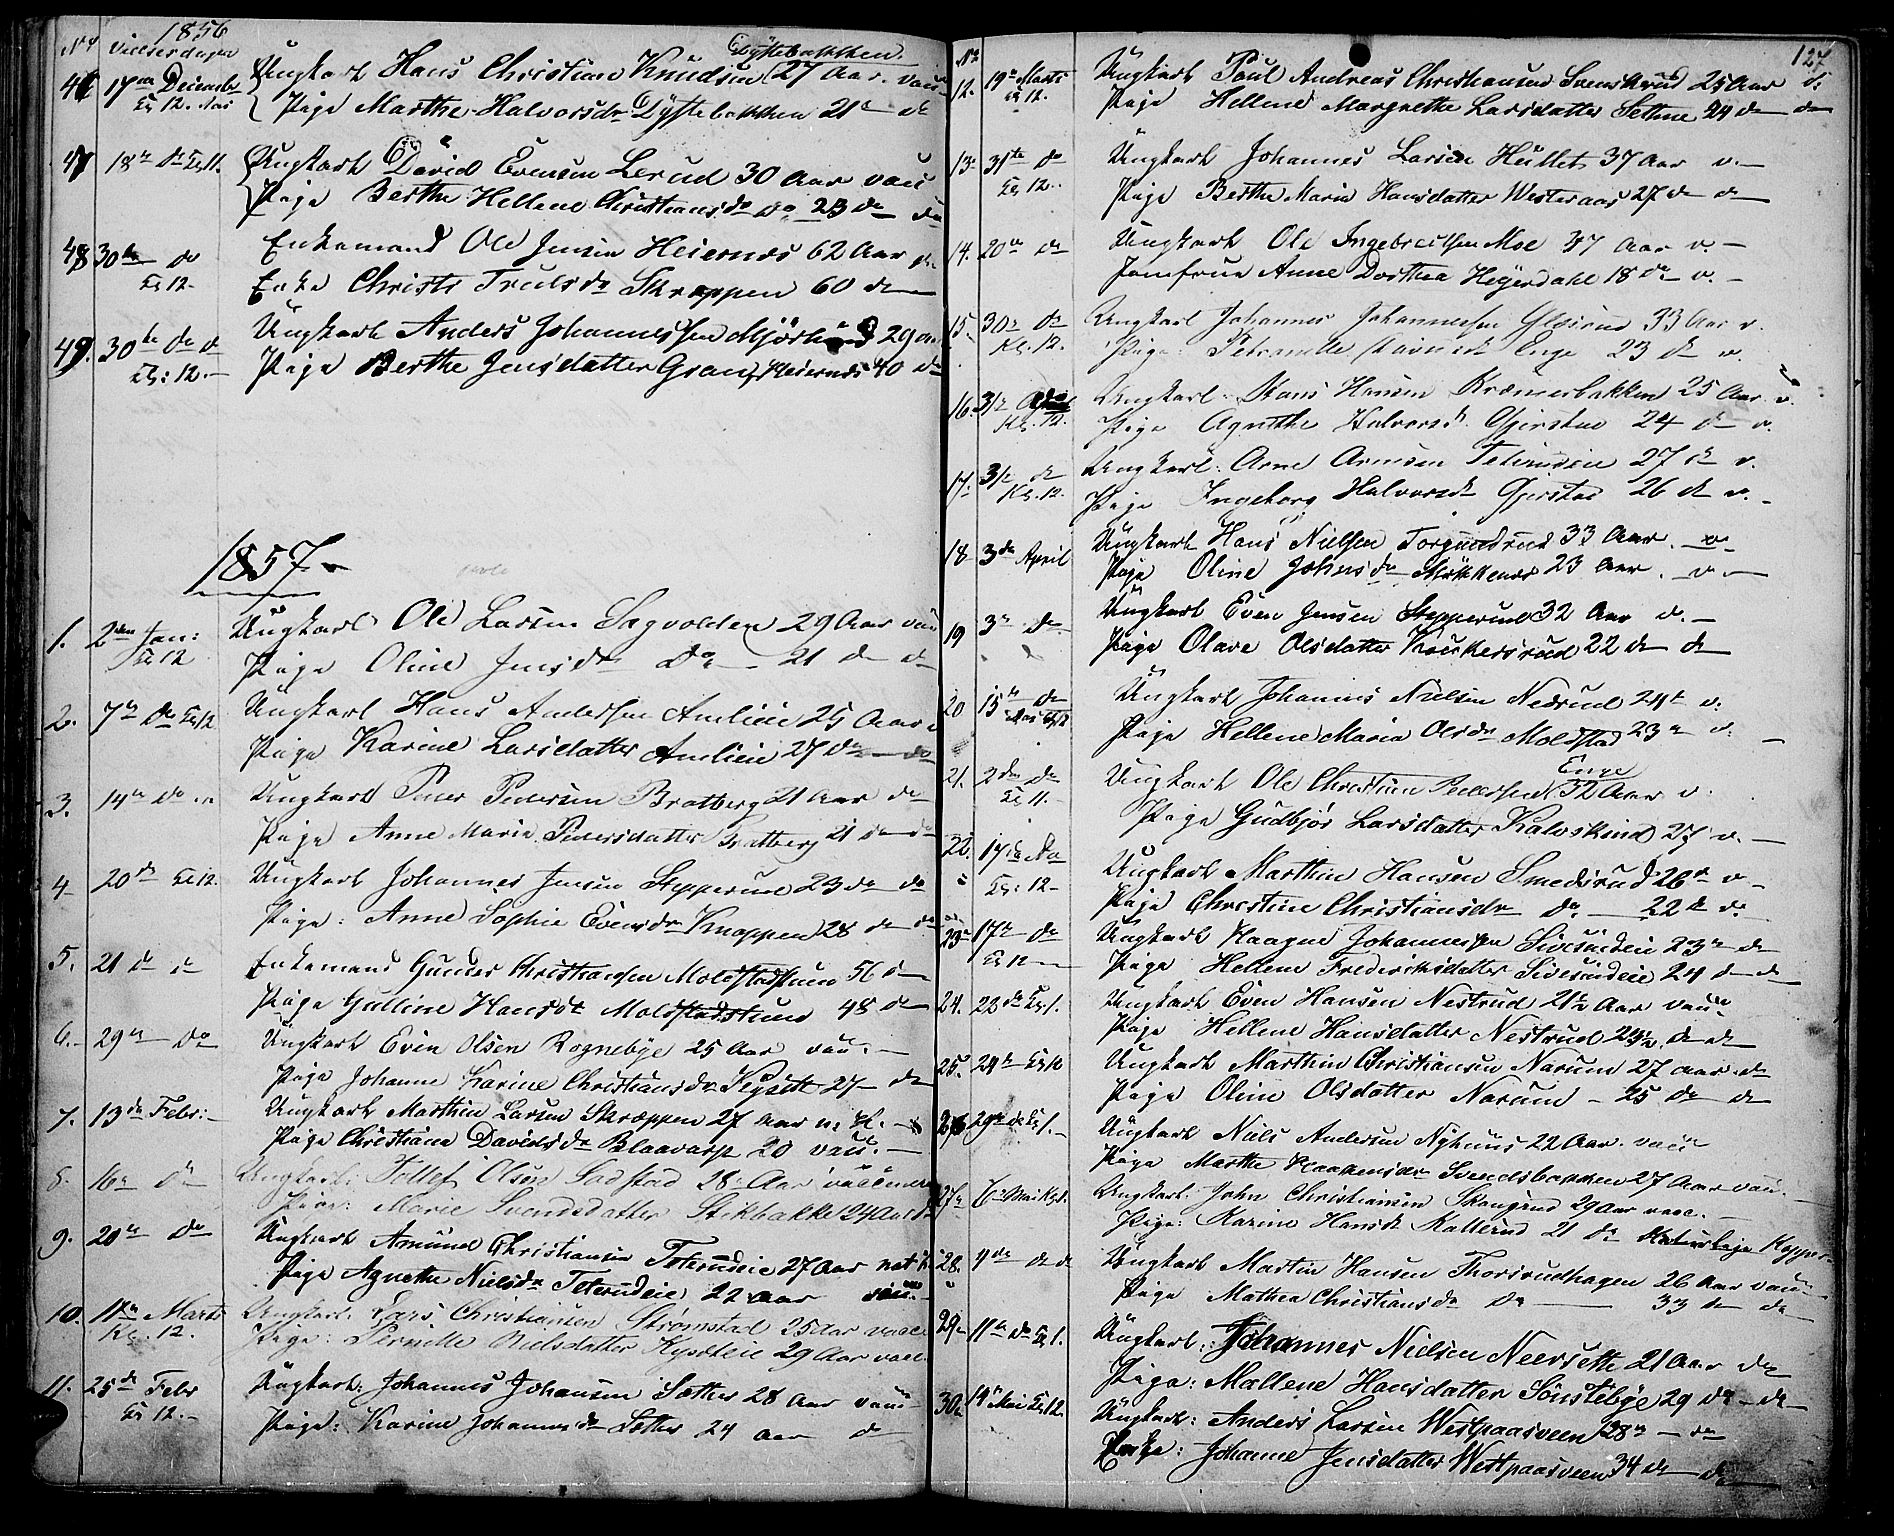 No 1856
Vielserdagen
Dystebakken.
46 17de Decembr Ungkarl Hans Christian Knudsen 27 Aar vac
Kl 12. Pige Marthe Halvorsdr Dystebakken 21 do do
47 18de do Kl 11. Ungkarl David Evensen Lerud 30 Aar vac
Pige Berthe Hellene Christiansdr do 23 do do
48 30te do Enkemand Ole Jensen Heiernes 62 Aar
Kl 12. Enke Christi Trulsdr Skreppen 60 do
49. 30te do do Ungkarl Anders Johannessen 29
Kl: 12. Pige Berthe Jensdatter Gran, Heiernes 40 do
1857.
1. 2den Jan: Ungkarl Ole Larsen Sagvolden 29 Aar vac
Kl 12 Pige Oline Jensdr do 21 do do
2. 7de do Kl 12 Ungkarl Hans Andersen Amlieie 25 Aar
Pige Karine Larsdatter Amlieie 27 do do
3. 14de do Ungkarl Peder Pedersen Bratberg 21 Aar do
Pige Anne Marie Pedersdatter Bratberg 21 do do
4 20de Kl 12. Ungkarl Johannes Jensen Stepperud 23 do do
Pige: Anne Sophie Evensdr Knappen 28 do do
5. 21 do do Enkemand Gunder Christiansen Moldstadstuen 56 do
Pige Gulline Hansdt Moldstadstuen 48 do
6. 29de do Ungkarl Even Olsen Rognebye 25 Aar vac.
Pige Johanne Karine Christiansdr 27 do
7. 13de Febr: Ungkarl Marthin Larsen Skreppen 27 Aar n. K.
Pige Christiane Davidsdr Blaavarp 20 vac.
8. 16de do Ungkarl: Tollef Olsen Gadstad 28 Aar vaccineret
Pige: Marie Svendsdatter Stikbakke 24 Aar do
9. 20de do Ungkarl Amund Christiansen Teterudeie 27 Aar nat K.
Pige Agnethe Nielsdr Teterudeie 22 Aar vac.
10. 11te Marts Ungkarl. Lars Christiansen Strømstad 25 Aar vacc
Kl. 12. Pige: Pernille Nielsdatter 29 Aar vacc.
11. 25de Febr Ungkarl: Johannes Johansen Sother 28 Aar vac
Kl 12. Pige: Karine Johannesdr Sother 24 Aar do
No 127
12. 19de Marts Ungkarl Poul Andreas Christiansen Svenskrud 25 Aar v.
Kl 12. Pige Hellene Margrethe Larsdatter Settene 24 do do
13. 31te do Ungkarl Johannes Larsen Hullet 37 Aar v.
Kl 12. Pige Berthe Marie Hansdatter Westeraas 27 do do
14. 20de do Ungkarl Ole Ingebretsen Moe 37 Aar v.
Jomfrue Anne Dorthea Heyerdahl 18 do v.
15. 30te do Ungkarl Johannes Johannesen 33 Aar v.
Kl. 12. Pige: Petronelle Enge 23 do v.
16. 3/4 Ungkarl. Hans Hansen Kræmerbakken 25 Aar v.
Kl. 12. Pige Agnethe Halvorsd. Gjerstad 24 do v.
17. 3/4 do Ungkarl. Arne Arnesen Teterudeie 27 do v.
Kl. 12. Pige Ingeborg Halvorsdt Gjerstad 26 do v.
18 3de April Ungkarl Hans Nielsen Torgundrud 33 Aar. v.
Pige Oline Johnsdr 23 Aar. v.
19 3de do Ungkarl Even Jensen Stepperud 32 Aar v.
Pige Olave Olsdatter Krukersrud 22 do do
20 15de do Ungkarl Johannes Nielsen Nedrud 24 v.
Pige Hellene Maria Olsdr Moldstad 23 v.
21. 2den do Ungkarl Ole Christian Pedersen Enge 32 Aar v.
Kl 11. Pige Gudbjør Larsdatter Kalvskind 27 v.
22. 17de do Ungkarl Marthin Hansen Smedsrud 26 v.
Kl: 12 Pige Christine Christiansdr do 22 do do
23 17de do Ungkarl Haagen Johannessen Sivesindeie 23 do
Kl 12 Pige Hellene Frederiksdatter Sivesindeie 24 do do
24. 23de Kl 1. Ungkarl Even Hansen Nestrud 21½ Aar vac.
Pige Hellene Hansdatter Nestrud 23½ do do
25. 24de Ungkarl Marthin Christiansen Narum 27 Aar do
Pige Oline Olsdatter Narum 25 do do
26 29de do Kl 1. Ungkarl Niels Andersen Nyhuus 22 Aar vac
Pige Marthe Haagensdr Svendsbakken 27 Aar vac.
27. 6te Mai Kl 1. Ungkarl: John Christiansen Skaugrud 29 Aar vacc.
Pige: Karine Hansdt Kallerud 21 do Naturlige Kopper.
28. 4de do do Ungkarl Martin Hansen Thorsrudhagen 26 Aar vac
Pige Mathea Christiansdr do 33 do do
29. 11te do Kl 1. Ungkarl: Johannes Nielsen Neersette 21 Aar do
Pige: Mallene Hansdatter Sønstebye 29 do do
30. 14de Mai Kl 12. Ungkarl: Anders Larsen Westpaasveen 28 do
Enke: Johanne Jensdatter Westpaasveen 34 do do